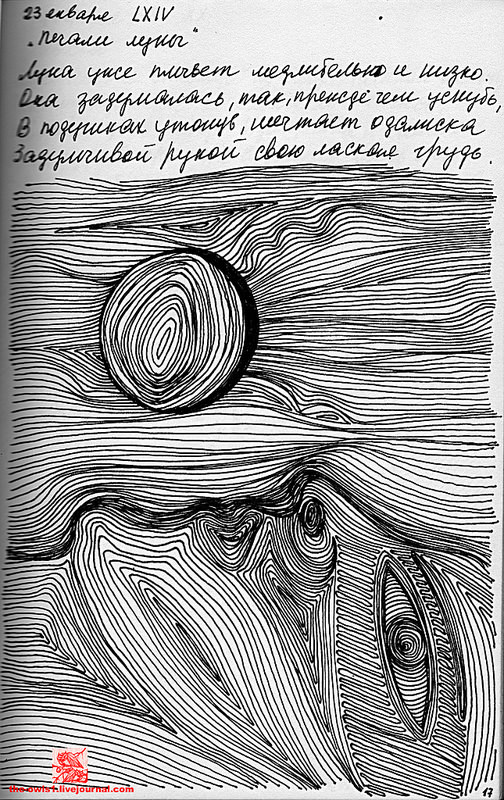 23 января LXIV
„Печали луны"
Луна уже плывёт медлительно и низко.
Она задумалась, так, прежде чем уснуть,
В подушках утонув, мечтает одалиска
Задумчивой рукой свою лаская грудь.
the-owls1.livejournal.com
17